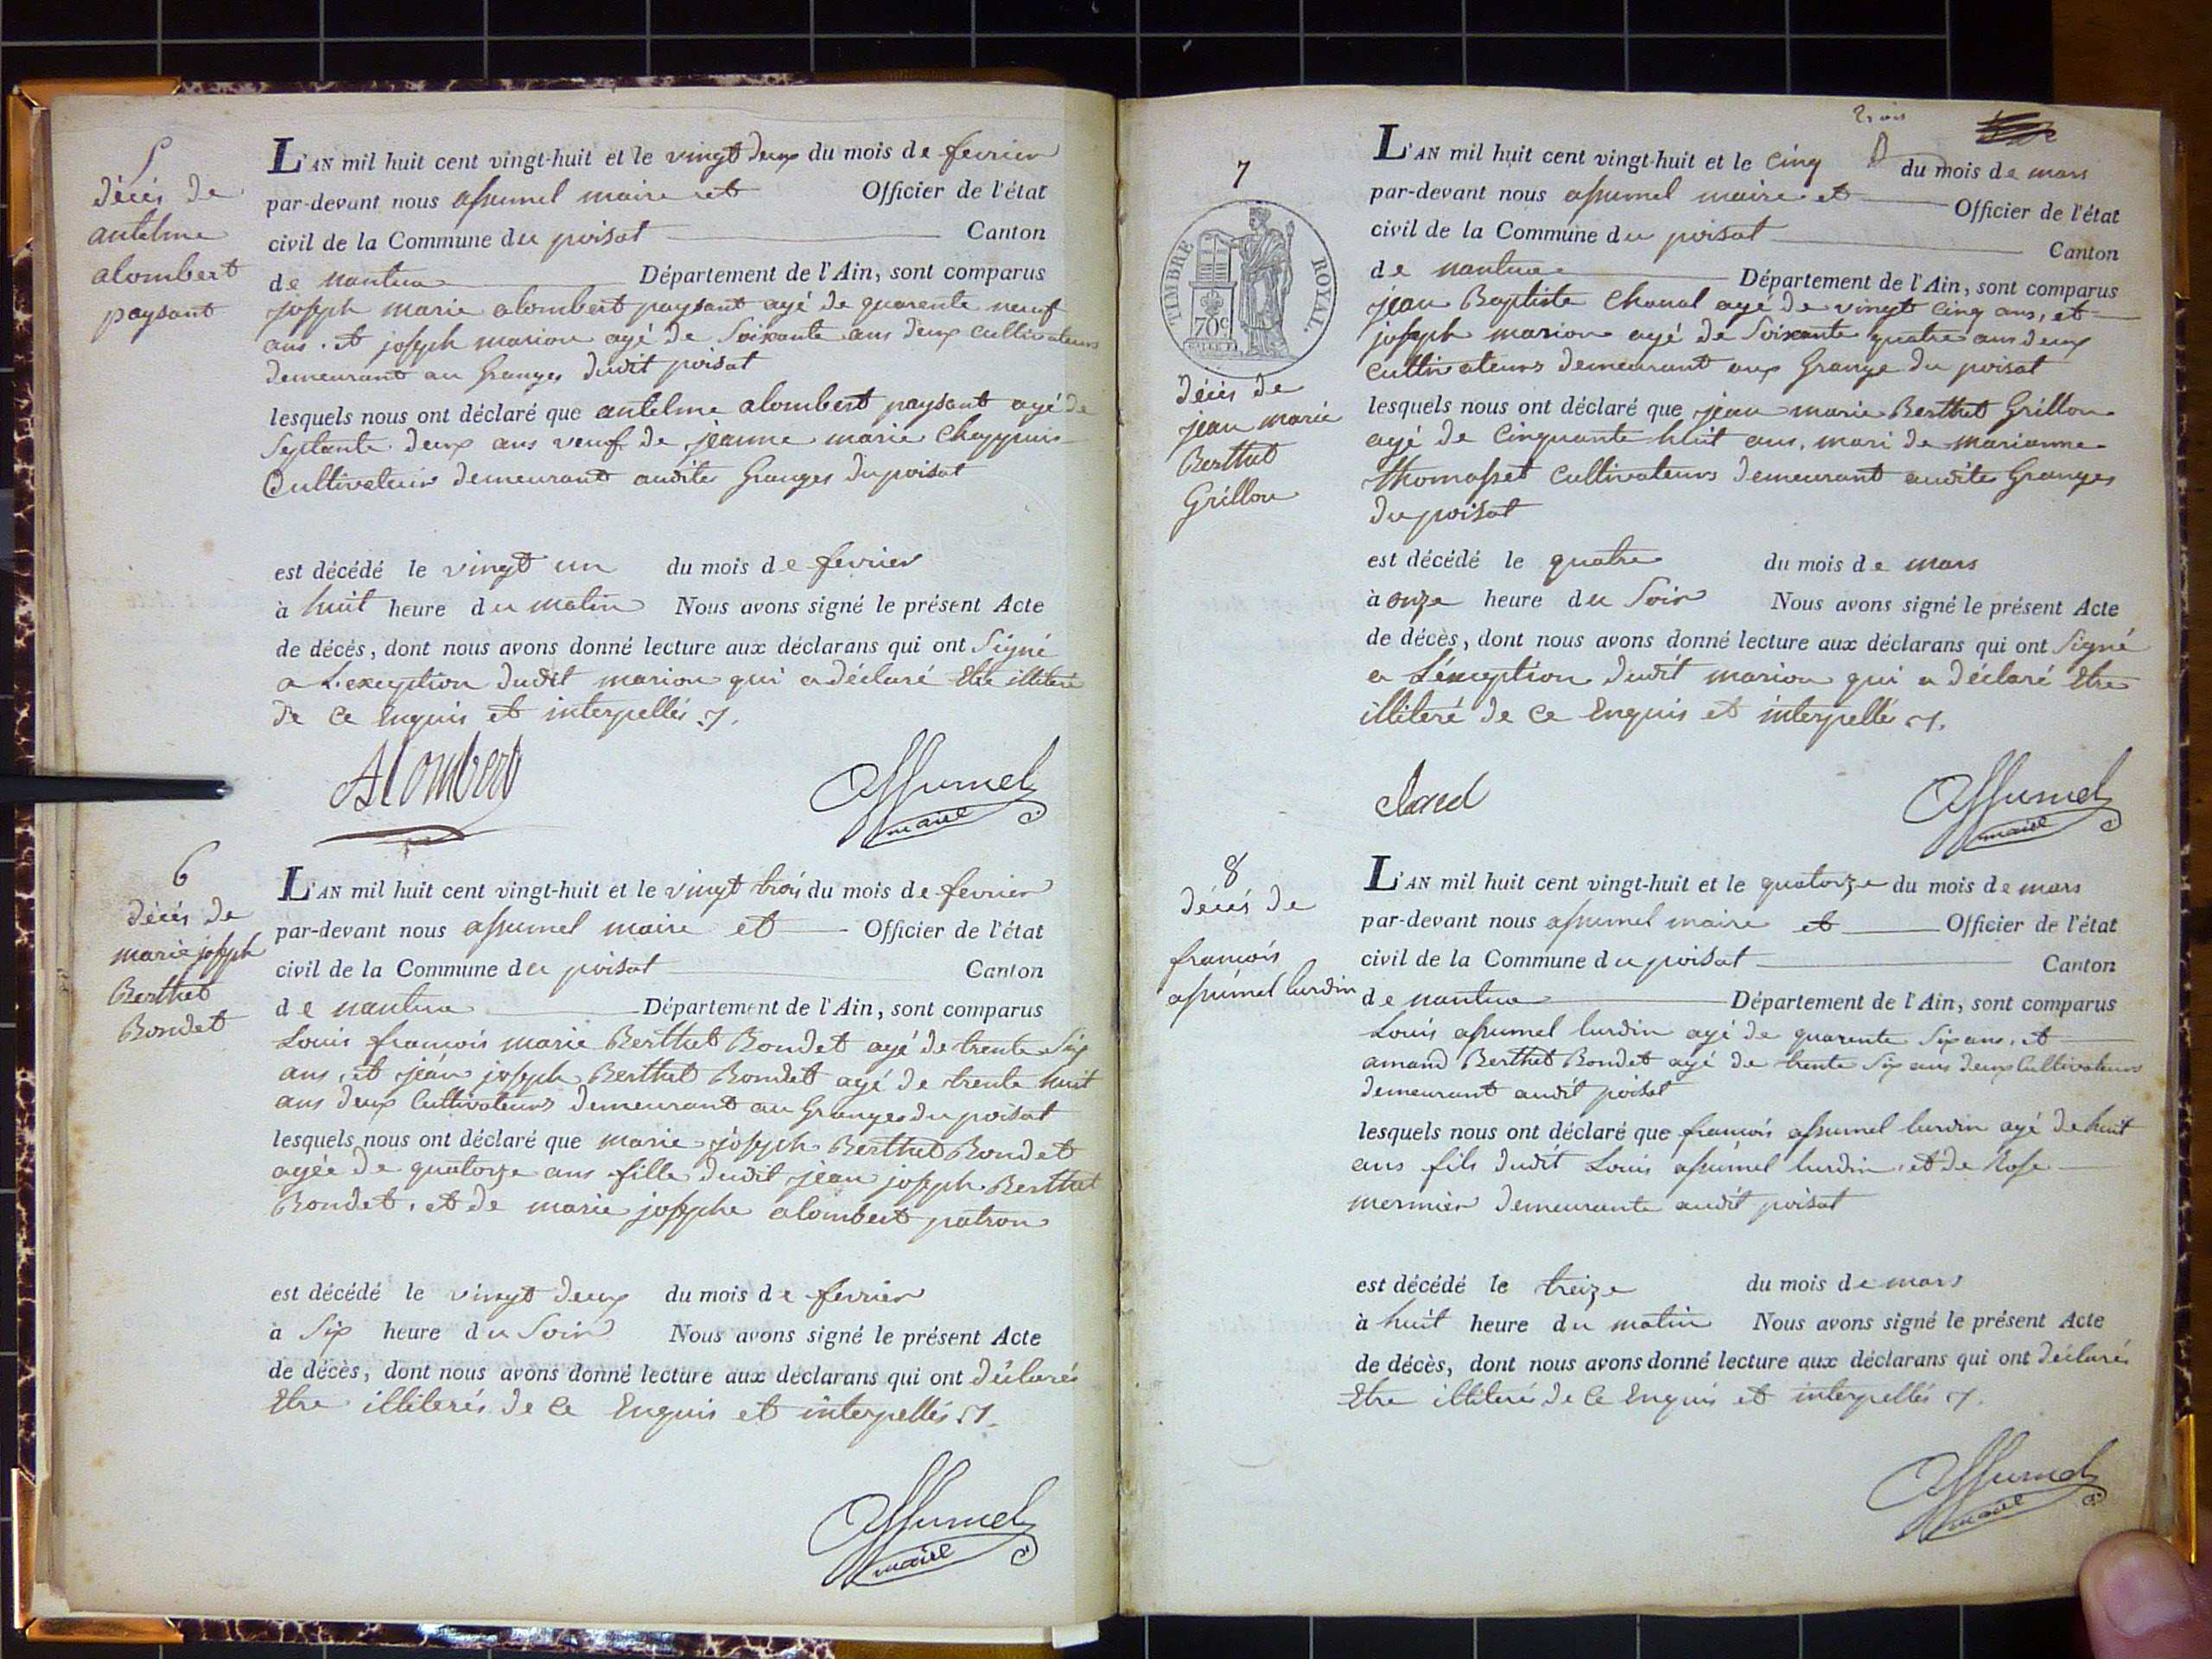 5
décès de
antelme
alombert
paysant
L'AN mil huit cent vingt-huit et le vingt deux du mois de fevrier
par-devant nous assumel maire et Officier de l'état
civil de la Commune du poisat Canton
de nantua Département de l'Ain, sont comparus
joseph marie alombert paysant agé de quarente neuf
ans. et joseph marion agé de Soixante ans deux cultivateurs
demeurant au Granges dudit poisat
lesquels nous ont déclaré que antelme alombert paysant agé de
Septante deux ans veuf de jeanne marie Chappuis
Cultivateur demeurant audites Granges du poisat
est décédé le vingt un du mois de fevrier
à huit heure du matin Nous avons signé le présent Acte
de décès, dont nous avons donné lecture aux déclarans qui ont Signé
a L'exception dudit marion qui a déclaré Etre illiteré
de Ce Enquis et interpellés
Alombert
Assumel
maire
6
décés de
marie joseph
Berthet
Bondet
L'AN mil huit cent vingt-huit et le vingt trois du mois de fevrier
par-devant nous assumel maire et Officier de l'état
civil de la Commune du poisat Canton
de nantua Département de l'Ain, sont comparus
Louis francois marie Berthet Bondet agé de trente Six
ans, et jéan joseph Berthet Bondet agé de trente huit
ans deux Cultivateurs demeurant au Granges du poisat
lesquels nous ont déclaré que marie joseph Berthet Bondet
agée de quatorze ans fille dudit jean joseph Berthet
Bondet, et de marie josephe alombert patron
est décédé le vingt deux du mois de fevrier
à Six heure du Soir Nous avons signé le présent Acte
de décès, dont nous avons donné lecture aux déclarans qui ont déclarés
Etre illiterés de Ce Enquis et interpellés
Assumel
maire
trois
7
TIMBRE ROYAL
70c
décés de
jean marie
Berthet
Grillon
L'AN mil huit cent vingt-huit et le Cinq du mois de mars
par-devant nous assumel maire et Officier de l'état
civil de la Commune du poisat Canton
de nantua Département de l'Ain, sont comparus
jean Baptiste Chanal agé de vingt Cinq ans, et
joseph marion agé de Soixante quatre ans deux
Cultivateurs demeurant aux Grange du poisat
lesquels nous ont déclaré que jean marie Berthet Grillon
agé de Cinquante huit ans, mari de marianne
thomasset Cultivateurs demeurant audites Granges
du poisat
est décédé le quatre du mois de mars
à onze heure du Soir Nous avons signé le présent Acte
de décès, dont nous avons donné lecture aux déclarans qui ont Signé
a L'éxception dudit marion qui a déclaré Etre
illiteré de Ce Enquis et interpellés
Assumel
maire
8
décés de
francois
assumel lurdin
L'AN mil huit cent vingt-huit et le quatorze du mois de mars
par-devant nous assumel maire et Officier de l'état
civil de la Commune du poisat Canton
de nantua Département de l'Ain, sont comparus
Louis assumel lurdin agé de quarente Six ans, et
amand Berthet Bondet agé de trente Six ans deux Cultivateurs
demeurant audit poisat
lesquels nous ont déclaré que francois assumel lurdin agé de huit
ans fils dudit Louis assumel lurdin, et de Rose
mermier demeurante audit poisat
est décédé le treize du mois de mars
à huit heure du matin Nous avons signé le présent Acte
de décès, dont nous avons donné lecture aux déclarans qui ont déclarés
Etre illiterés de Ce Enquis et interpellés
Assumel
maire